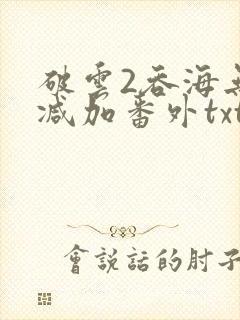 破雲2吞海無
减加番外txt
會說話的肘子